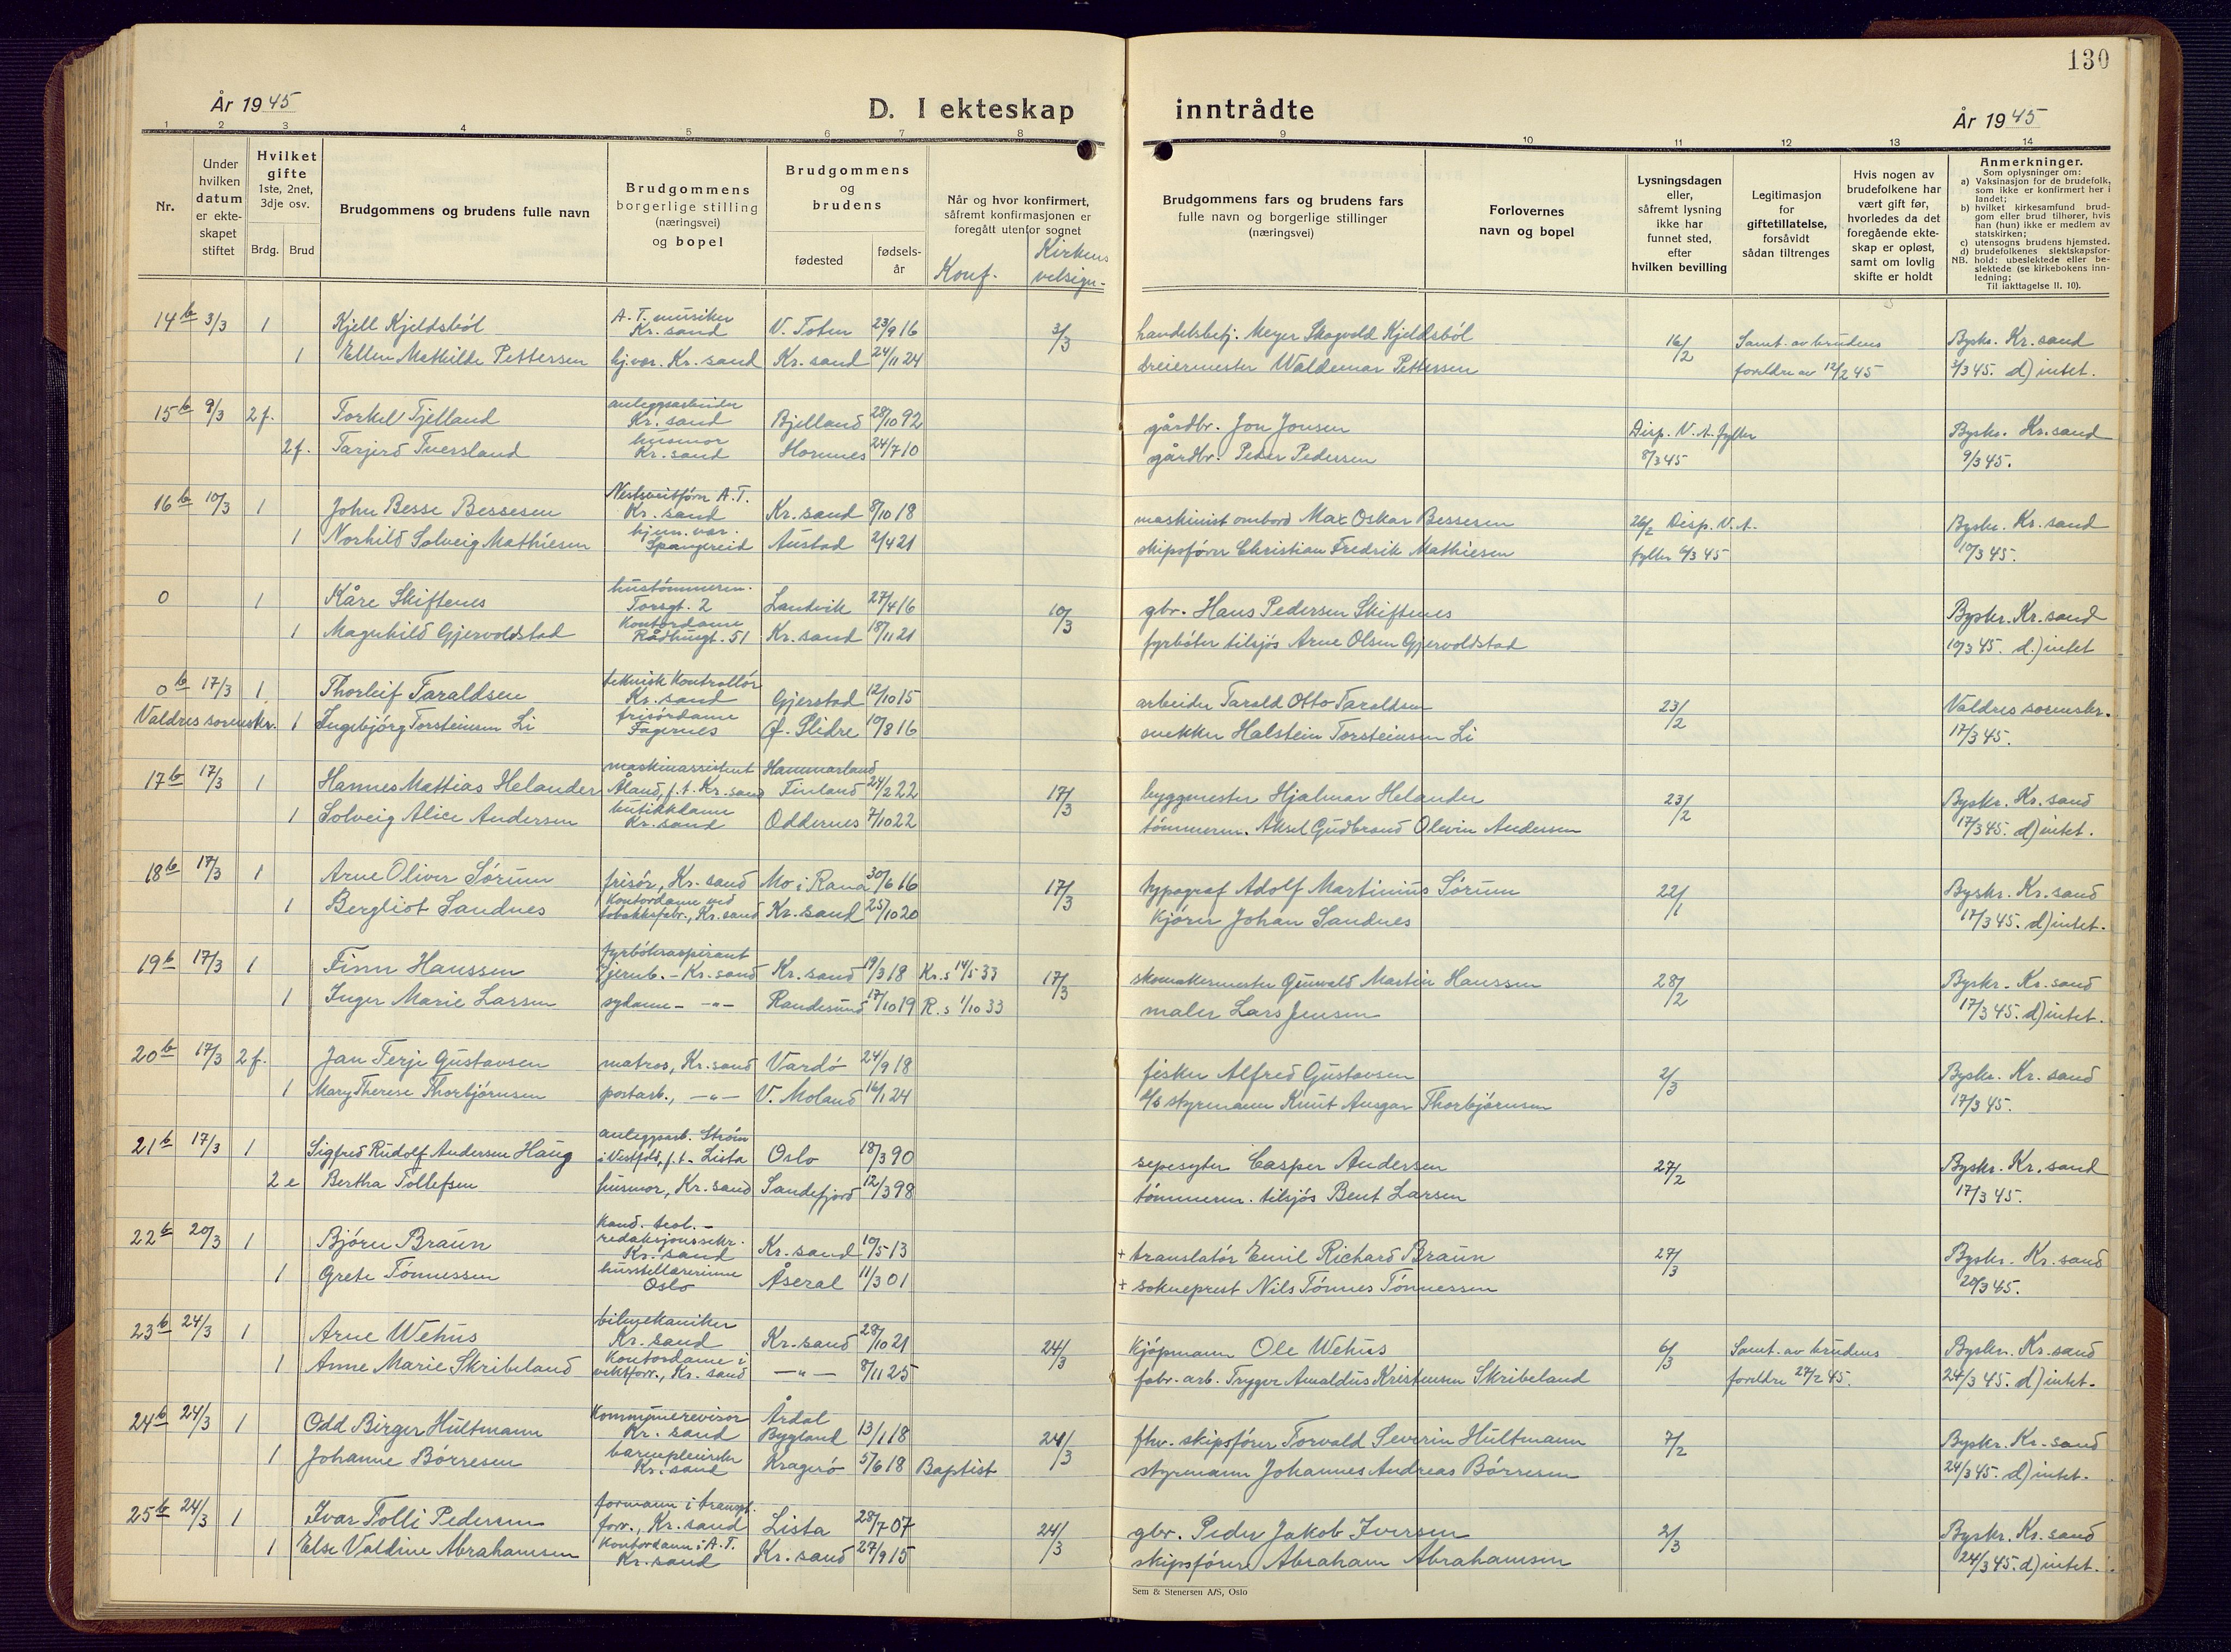 130
År 1945
D. I ekteskap
inntrådte
År 1945
1 2 3 4 5 6 7 8 9 10 11 12 13 14
Nr.
Under hvilken datum er ekteskapet stiftet
Hvilket gifte 1ste, 2net, 3dje osv.
Brdg. Brud
Brudgommens og brudens fulle navn
Brudgommens borgerlige stilling (næringsvei) og bopel
Brudgommens og brudens
fødested
fødsels-år
Når og hvor konfirmert, såfremt konfirmasjonen er foregått utenfor sognet
Konf.
Kirkens velsign.
Brudgommens fars og brudens fars fulle navn og borgerlige stillinger (næringsvei)
Forlovernes navn og bopel
Lysningsdagen eller, såfremt lysning ikke har funnet sted, efter hvilken bevilling
Legitimasjon for giftetillatelse, forsåvidt sådan tiltrenges
Hvis nogen av brudefolkene har vært gift før, hvorledes da det foregående ekteskap er opløst, samt om lovlig skifte er holdt
Anmerkninger.
Som oplysninger om:
a) Vaksinasjon for de brudefolk, som ikke er konfirmert her i landet;
b) hvilket kirkesamfund brudgom eller brud tilhører, hvis han (hun) ikke er medlem av statskirken;
c) utensogns brudens hjemsted.
d) brudefolkenes slektskapsforhold: ubeslektede eller beslektede (se kirkebokens innledning;
NB.
Til iakttagelse II. 10).
14 b 3/3 1 Kjell Kjeldsböl A.T. musiker Kr.sand V. Toten 23/9 16 3/3 handelsbetj. Meyer Skogvold Kjeldsböl 16/2 Samt. av brudens Byskr. Kr.sand
1 Ellen Mathilde Pettersen hj.vær. Kr.sand Kr.sand 24/11 24 dreiermester Waldemar Pettersen foreldre av 12/2 45 3/3 45. d) intet.
15 b 9/3 2 f. Torkel Tjelland anleggsarbeider Kr.sand Bjelland 28/10 92 gårdbr. Jon Jonsen Disp. V.A. fylker Byskr. Kr.sand
2 f. Tarjerd Tversland husmor Kr.sand Hornnes 24/7 10 gårdbr. Peder Pedersen 8/3 45 9/3 45.
16 b 10/3 1 John Besse Bessesen A.T. Kr.sand Kr.sand 8/10 18 maskinist ombord Max Oskar Bessesen 26/2 Disp. V.A. Byskr. Kr.sand
1 Norhild Solveig Mathiesen hjem. vær Spangereid Austad 2/4 21 skipsfører Christian Fredrik Mathiesen fylker 6/3 45 10/3 45.
0 1 Kåre Skiftenes hustömmerm. Torsgt. 2 Landvik 27/4 16 10/3 gbr. Hans Pedersen Skiftenes Byskr. Kr.sand
1 Magnhild Gjervoldstad Kontordame Rådhusgt. 51 Kr.sand 18/11 21 fyrböter tilsjös Arne Olsen Gjervoldstad 10/3 45. d.) intet
0 b 17/3 1 Thorleif Taraldsen teknisk Kontrollör Kr.sand Gjerstad 12/10 15 arbeider Tarald Otto Taraldsen 23/2 Valdres sorenskr.
Valdres sorenskr. 1 Ingebjörg Torsteinsen Li frisördame Fagernes Ø. Slidre 10/8 16 snekker Halstein Torsteinsen Li 17/3 45.
17 b 17/3 1 Hannes Mattias Helander maskinassistent Åland, f.t. Kr.sand Hammarland Finland 24/2 22 17/3 byggmester Hjalmar Helander 23/2 Byskr. Kr.sand
1 Solveig Alice Andersen butikkdame Kr.sand Oddernes 7/10 22 tömmerm. Aksel Gudbrand Olevin Andersen 17/3 45. d) intet.
18 b 17/3 1 Arne Oliver Sörum frisör, Kr.sand Mo i Rana 30/6 16 17/3 typograf Adolf Martinius Sörum 22/1 Byskr. Kr.sand
1 Bergliot Sandnes Kontordame ved tobakksfabr., Kr.sand Kr.sand 25/10 20 Kjörer Johan Sandnes 17/3 45. d) intet.
19 b 17/3 1 Finn Hanssen fyrböteraspirant jernb. - Kr.sand Kr.sand 19/3 18 Kr.s 14/5 33 17/3 skomakermester Gunvald Martin Hanssen 28/2 Byskr. Kr.sand
1 Inger Marie Larsen sydame - -"- Randesund 17/10 19 R.s 1/10 33 maler Lars Jensen 17/3 45. d) intet.
20 b 17/3 2 f. Jan Terje Gustavsen matros, Kr.sand Vardö 24/9 18 fisker Alfred Gustavsen 2/3 Byskr. Kr.sand
1 Mary Therese Thorbjörnsen postasb., -"- V. Moland 16/1 24 styrmann Knut Ansgar Thorbjörnsen 17/3 45.
21 b 17/3 1 Sigfred Rudolf Andersen Haug anleggsarb. Ström i Vestfold, f.t. Lista Oslo 18/3 90 sepesyder Casper Andersen 27/2 Byskr. Kr.sand
2 e Bertha Tollefsen husmor, Kr.sand Sandefjord 12/3 98 tömmerm. tilsjös Bent Larsen 17/3 45.
22 b 20/3 1 Björn Braun Kand. teol. - redaksjonssekr. Kr.sand Kr.sand 10/5 13 + translatör Emil Richard Braun 27/3 Byskr. Kr.sand
1 Grete Tönnessen husstellærerinne Oslo Åseral 11/3 01 + sokneprest Nils Tönnes Tönnessen 20/3 45.
23 b 24/3 1 Arne Wehus bilmekaniker Kr.sand Kr.sand 28/10 21 24/3 Kjöpmann Ole Wehus 6/3 Samt. av brudens Byskr. Kr.sand
1 Anne Marie Skribeland Kontordame i vektforr., Kr.sand -"- 8/11 25 fabr. arb. Trygve Arnaldus Kristensen Skribeland foreldre 27/2 45. 24/3 45. d) intet.
24 b 24/3 1 Odd Birger Hultmann Kommunerevisor Kr.sand Årdal Bygland 13/1 18 24/3 fhv. skipsförer Torvald Severin Hultmann 7/2 Byskr. Kr.sand
1 Johanne Börresen barnepleierske Kr.sand Kragerö 5/6 18 Baptist styrmann Johannes Andreas Börresen 24/3 45. d) intet.
25 b 24/3 1 Ivar Tolli Pedersen formann i transpt. forr., Kr.sand Lista 28/7 07 24/3 gbr. Peder Jakob Iversen 2/3 Byskr. Kr.sand
1 Else Valdine Abrahamsen Kontordame i A.T. Kr.sand Kr.sand 27/9 15 skipsförer Abraham Abrahamsen 24/3 45. d) intet.
Sem & Stenersen A/S, Oslo